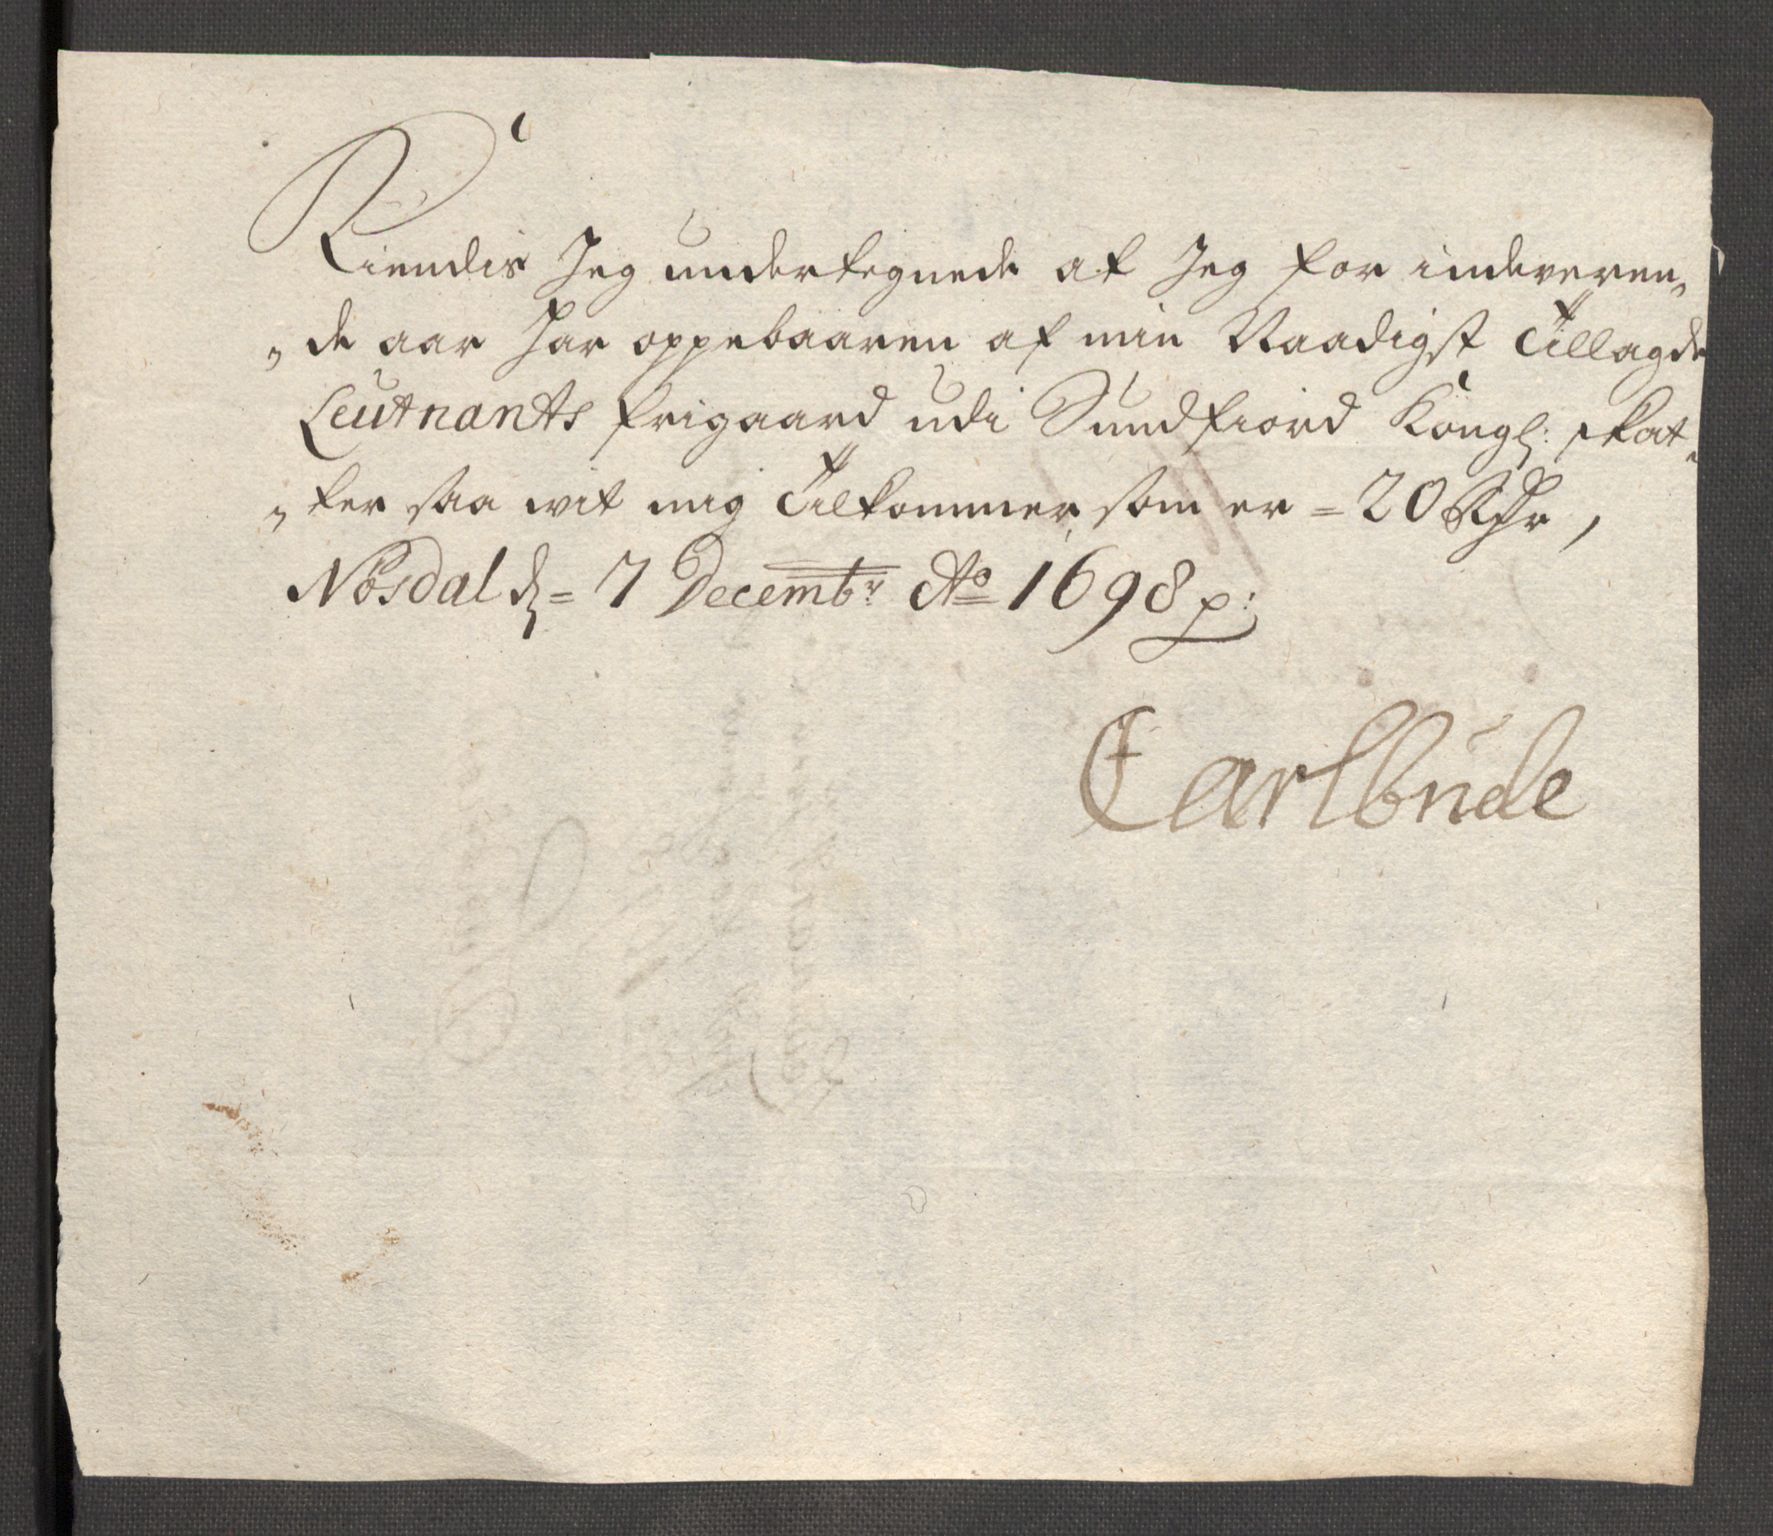 Kiendis Jeg undertegnede at Jeg for indeveren„
„de aar har oppebaaren af min Naadigst Tillagde
Leutnants frigaard udi Sundfiord Kongl: skat„
„ter saa wit mig Tilkommer som er = 20 Rdr,
Nösdal d = 7 Decembr Ao 1698 p:
Carl bude